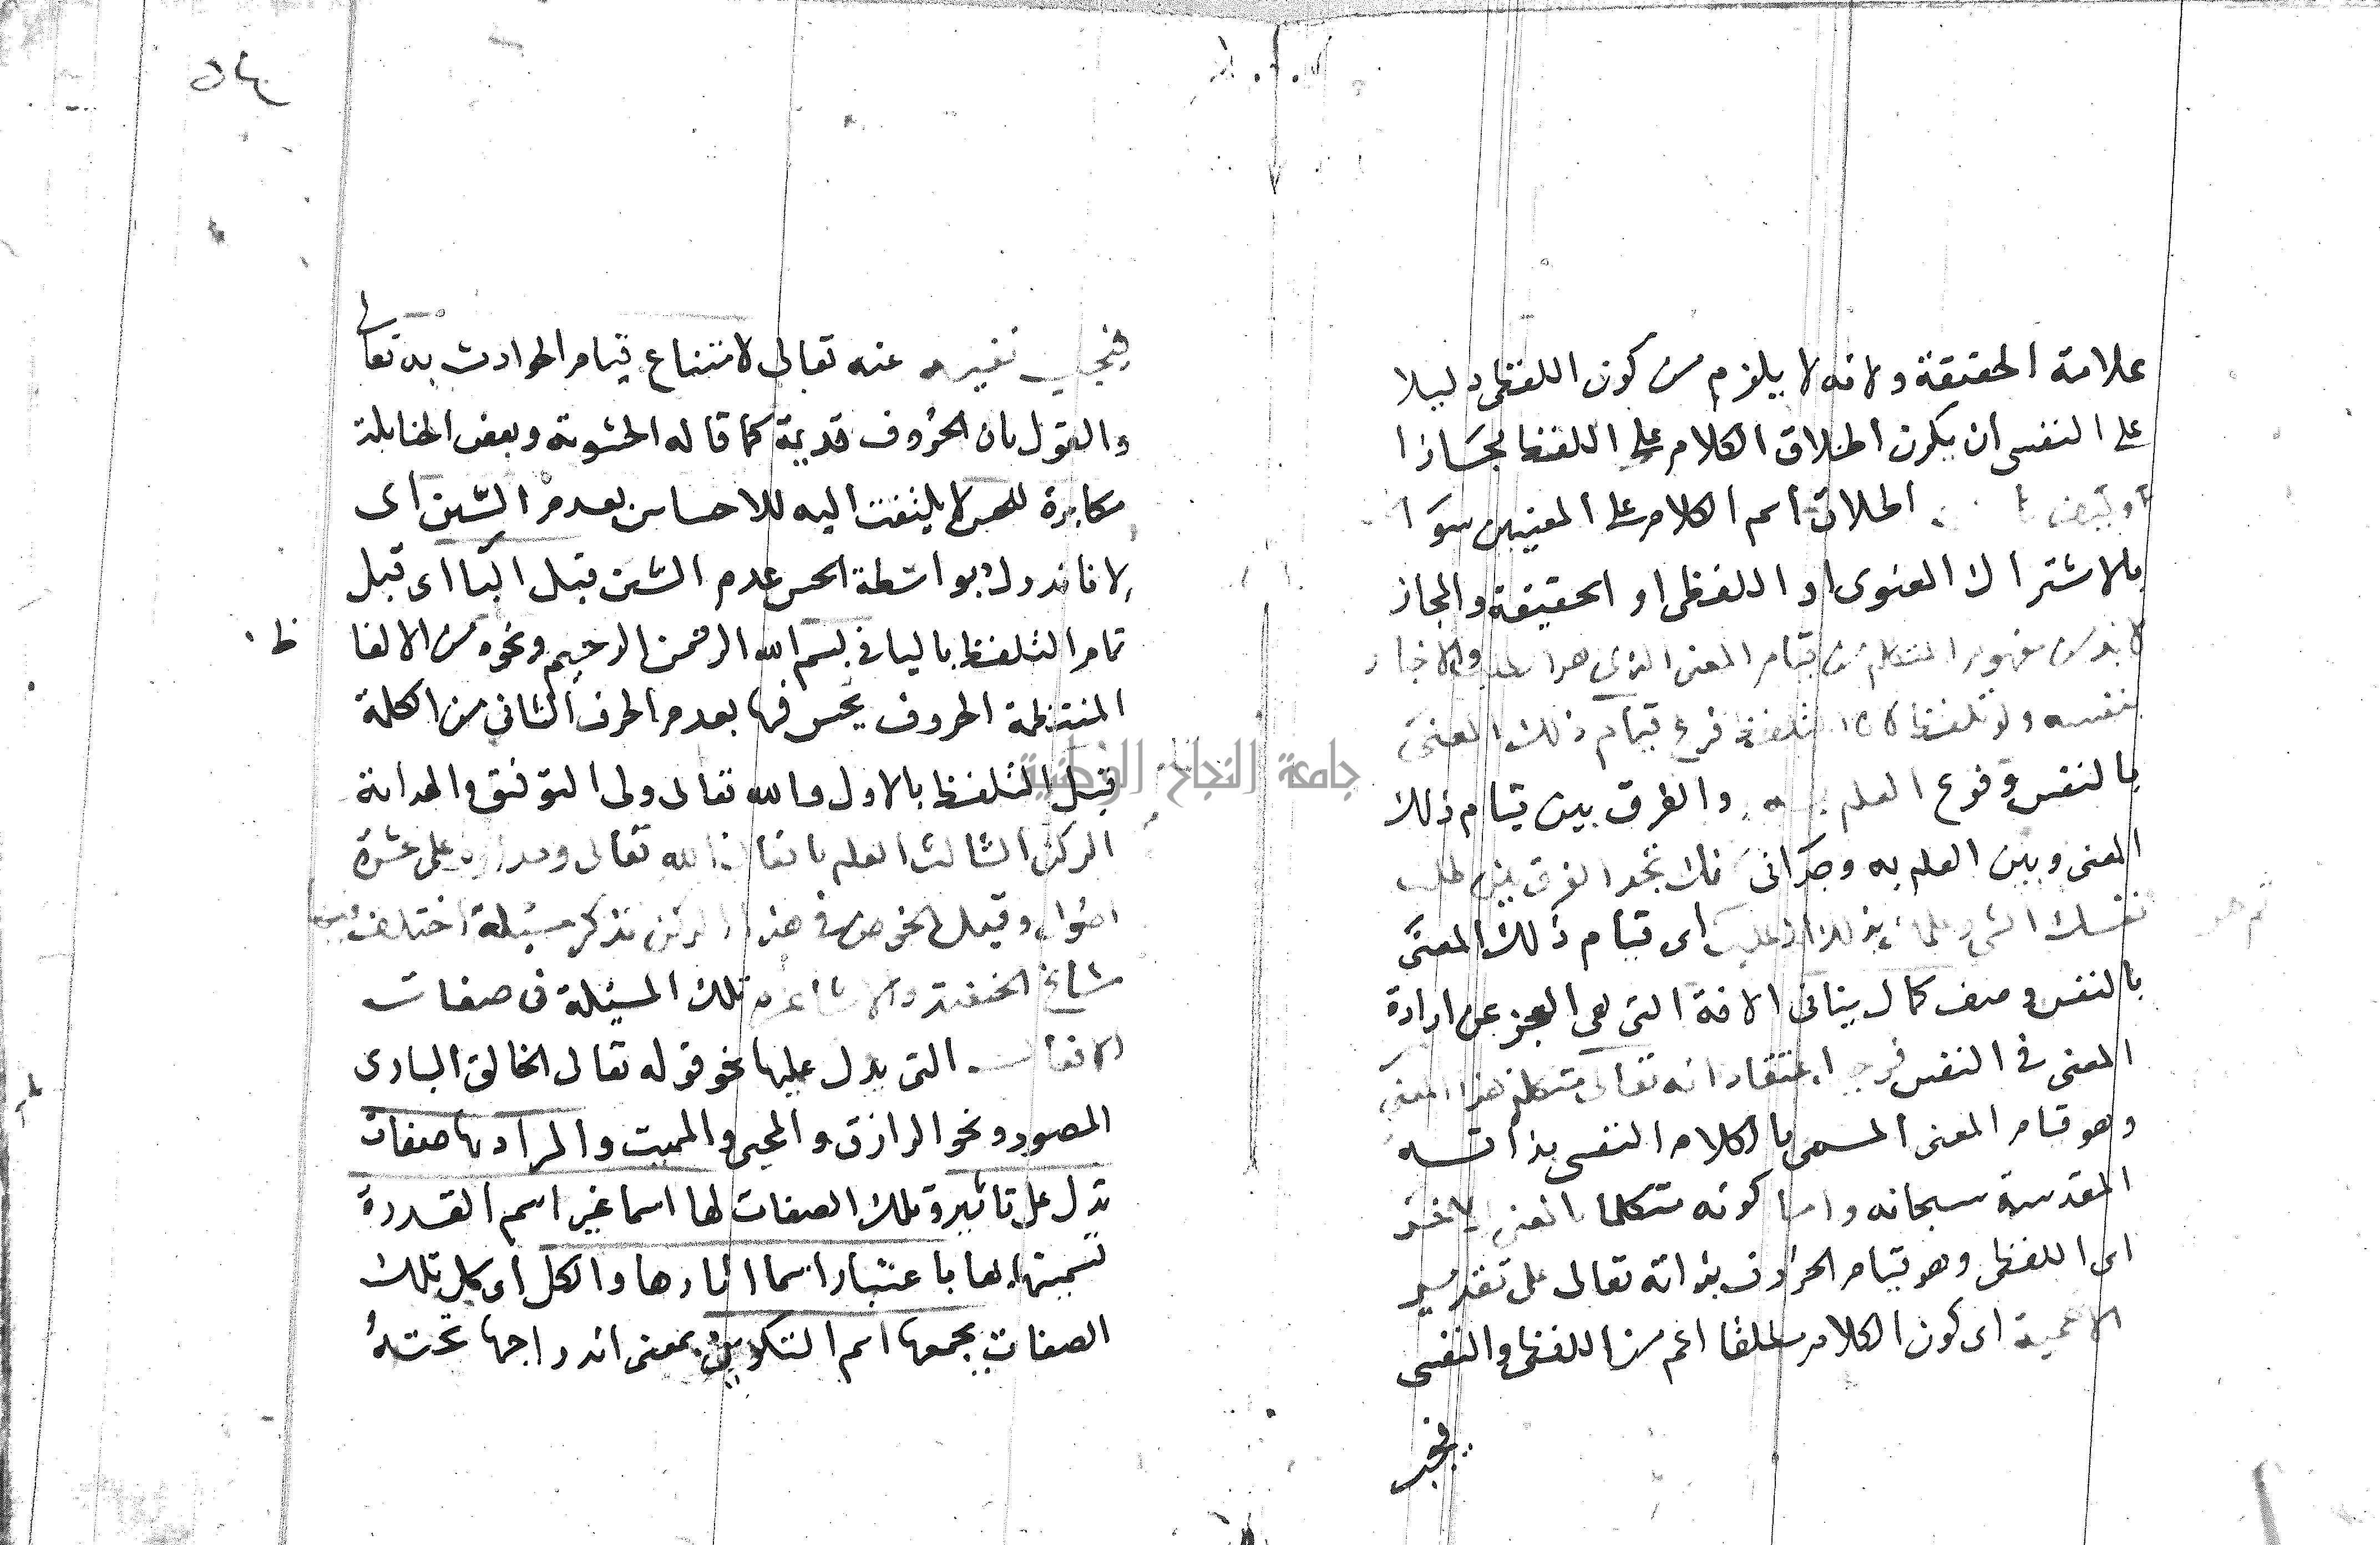 علامة الحقيقة ولانه لا يلزم من كون اللفظى دليلا
على النفسى ان يكون اطلاق الكلام على اللفظى مجازا
اطلاق اسم الكلام على المعنيين سوا
بالاشتراك المعنوى او اللفظى او الحقيقة والمجاز
لابد من مفهوم المتكلم من قيام المعنى الذى هو الطلب والاخبار
بنفسه ولو تلفظ لان التلفظ فرع قيام ذلك المعنى
بالنفس وفرع العلم به والفرق بين قيام ذلك
المعنى وبين العلم به وجدانى فانك تجد الفرق بين طلب
نفسك الشى وعلمك بذلك الطلب اى قيام ذلك المعنى
بالنفس وصف كمال ينافى الافة التى هى العجز عن ارادة
المعنى فى النفس فوجب اعتقاد انه تعالى متكلم بهذا المعنى
وهو قيام المعنى المسمى بالكلام النفسى بذاته
المقدسة سبحانه واما كونه متكلما بالمعنى الاخر
اى اللفظى وهو قيام الحروف بذاته تعالى على تقدير
الاعمية اى كون الكلام مطلقا اعم من اللفظى والنفسى
فيجب
فيجب نفيه عنه تعالى لامتناع قيام الحوادث به تعالى
والقول بان الحروف قديمة كما قاله الحشوية وبعض الحنابلة
مكابرة للحس لا يلتفت اليه للاحساس بعدم السّين اى
لانا ندرك بواسطة الحس عدم السين قبل البا اى قبل
تمام التلفظ بالبا فى بسم الله الرحمن الرحيم ونحوه من الالفا
ظ
المنتظمة الحروف يحس فيها بعدم الحرف الثانى من الكلمة
قبل التلفظ بالاول والله تعالى ولى التوفيق والهداية
الركن الثالث العلم بافعال الله تعالى ومداره على عشرة
اصول وقبل الخوض فى هذا الركن نذكر مسئلة اختلف فيها
مشايخ الحنفية والاشاعرة تلك المسئلة فى صفات
الافعال التى يدل عليها نحو قوله تعالى الخالق البارى
المصور ونحو الرازق والمحيى والمميت والمراد بها صفات
تدل على تاثير وتلك الصفات لها اسما غير اسم القدرة
تسميتها بها باعتبار اسما اثارها والكل اى كل تلك
الصفات يجمعها اسم التكوين بمعنى اندراجها تحته
جامعة النجاح الوطنية